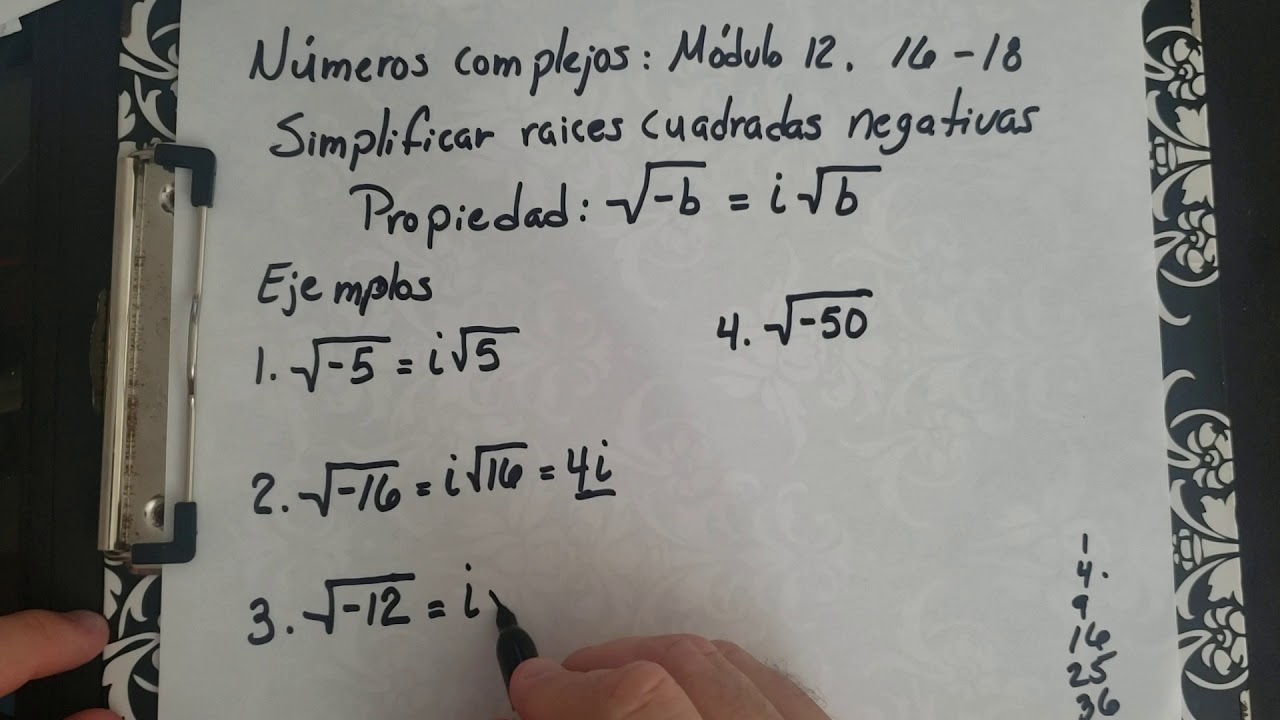 Números complejos: Módulo 12. 16-18
Simplificar raices cuadradas negativas
Propiedad: √-b = i√b
Ejemplos
1. √-5 = i√5
2. √-16 = i√16 = 4i
3. √-12 = i
4. √-50
1
4.
9
16
25
36